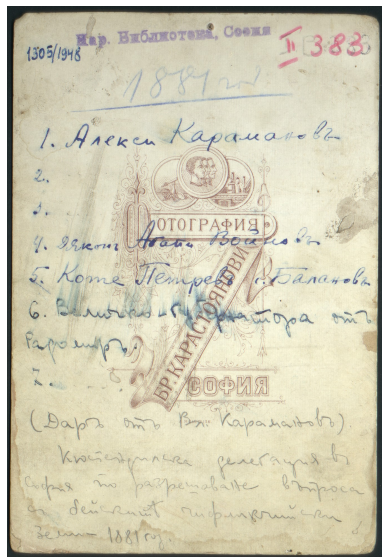 Нар. Библиотека, София
1305/1948
II 383
1881 год
1. Алекси Карамановъ
2.
3.
ФОТОГРАФИЯ
4. Дякон Войновъ
5. Коте Петревъ г. Балановъ
6. Величко отъ
Радомиръ.
7.
БР. КАРАСТОЯНОВИ
СОФИЯ
(Даръ отъ Карамановъ)
Кюстендилска делегация въ
София по разрешаване въпроса
за бейскитѣ чифликчийски
земи 1881 год.